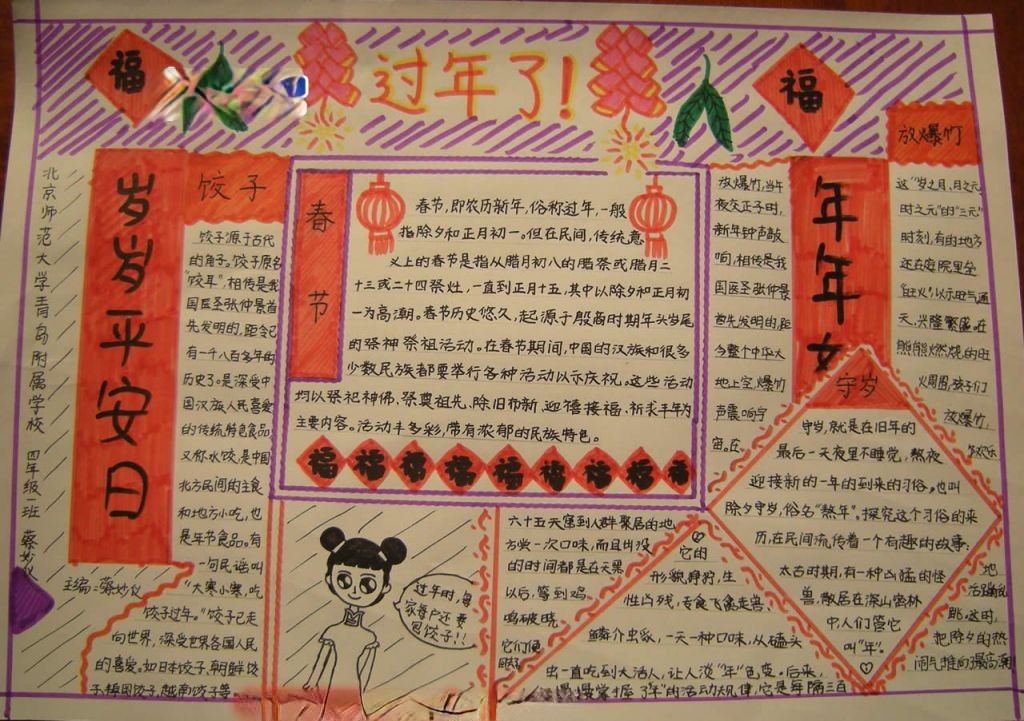 福
过年了!
福
北京师范大学青岛附属学校 四年级一班 蔡妙仪
岁岁平安日
饺子
饺子源于古代
的角子。饺子原名
“饺耳”,相传是我
国医圣张仲景首
先发明的,距今已
有一千八百多年的
历史了。是深受中
国汉族人民喜爱
的传统特色食品,
又称水饺,是中国
北方民间的主食
和地方小吃,也
是年节食品。有
一句民谣叫
“大寒小寒,吃
饺子过年。”饺子已走
向世界,深受世界各国人民
的喜爱。如日本饺子、朝鲜饺
子、越南饺子等。
主编:蔡妙仪
春节
春节,即农历新年,俗称过年,一般
指除夕和正月初一。但在民间,传统意
义上的春节是指从腊月初八的腊祭或腊月二
十三或二十四祭灶,一直到正月十五,其中以除夕和正月初
一为高潮。春节历史悠久,起源于殷商时期年头岁尾
的祭神祭祖活动。在春节期间,中国的汉族和很多
少数民族都要举行各种活动以示庆祝。这些活动
均以祭祀神佛、祭奠祖先、除旧布新、迎禧接福、祈求丰年为
主要内容。活动丰多彩,带有浓郁的民族特色。
福福福福福福福福福
过年时,每
家每户还要
包饺子!!
年年
放爆竹
放爆竹,当午
夜交正子时,
新年钟声敲
响,相传是我
国医圣张仲景
首先发明的,距
今整个中华大
地上空,爆竹
声震响宇
宙。在
这“岁之月、月之元、
时之元”的“三元”
时刻,有的地方
还在庭院里垒
“旺火”,以示旺气通
天,兴隆繁盛。在
熊熊燃烧的旺
火周围,孩子们
放爆竹,
守岁
守岁,就是在旧年的
最后一天夜里不睡觉,熬夜
迎接新的一年的到来的习俗。也叫
除夕守岁,俗名“熬年”。探究这个习俗的来
历,在民间流传着一个有趣的故事:
太古时期,有一种凶猛的怪
兽,散居在深山密林
中,人们管它
叫“年”。
它的
形貌狰狞,生
性凶残,专食飞禽走兽、
鳞介虫豸,一天一种口味,从磕头
虫一直吃到大活人,让人谈“年”色变。后来,
人们慢慢掌握了“年”的活动规律,它是每隔三百
六十五天窜到人群聚居的地
方尝一次口味,而且出没
的时间都是在天黑
以后,等到鸡
鸣破晓,
它们便
把除夕的热
闹气推向最高潮